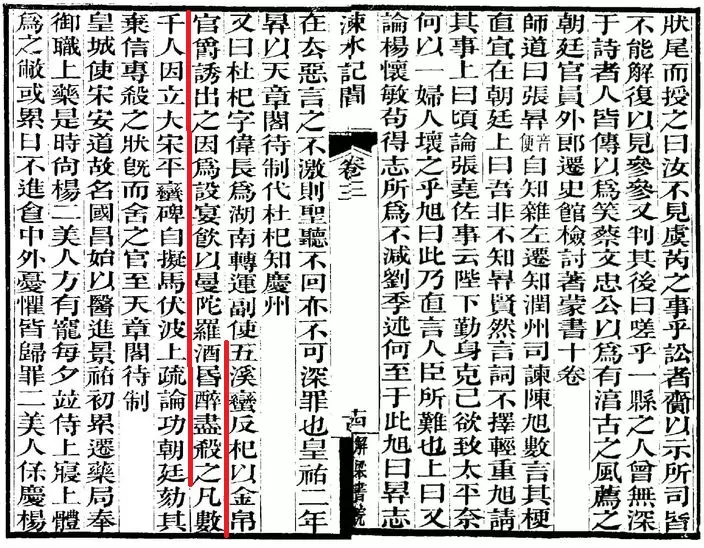 狀尾而授之曰汝不見虞芮之事乎訟者齎以示所司皆
不能解復以見參參又判其後曰嗟乎一縣之人曾無深
于詩者人皆傳以爲笑蔡文忠公以爲有滀古之風薦之
朝廷官員外郎遷史館檢討著蒙書十卷
師道曰張昪音便自知雜左遷知潤州司諫陳旭數言其梗
直宜在朝廷上曰吾非不知昪賢然言詞不擇輕重旭請
其事上曰頃論張堯佐事云陛下勤身克己欲致太平奈
何以一婦人壞之乎旭曰此乃直言人臣所難也上曰又
論楊懷敏苟得志所爲不減劉季述何至于此旭曰昪志
涑水記聞 卷三 十四 解梁書院
在去惡言之不激則聖聽不回亦不可深罪也皇祐二年
昪以天章閣待制代杜杞知慶州
又曰杜杞字偉長爲湖南轉運副使五溪蠻反杞以金帛
官爵誘出之因爲設宴飲以曼陀羅酒昏醉盡殺之凡數
千人因立大宋平蠻碑自擬馬伏波上疏論功朝廷劾其
棄信專殺之狀旣而舍之官至天章閣待制
皇城使宋安道故名國昌始以醫進景祐初累遷藥局奉
御職上藥是時尙楊二美人方有寵每夕竝侍上寢上體
爲之敝或累日不進食中外憂懼皆歸罪二美人保慶楊